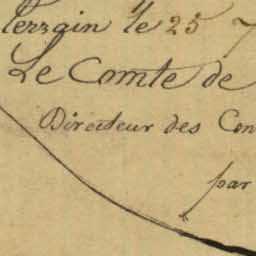 terrain le 25 7
Le Comte de
Directeur des Con
par